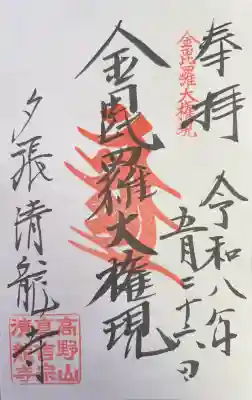 奉拝
令和八年
五月二十六日
金毘羅大権現
金毘羅大権現
夕張清龍寺
高野山
真言宗
清龍寺